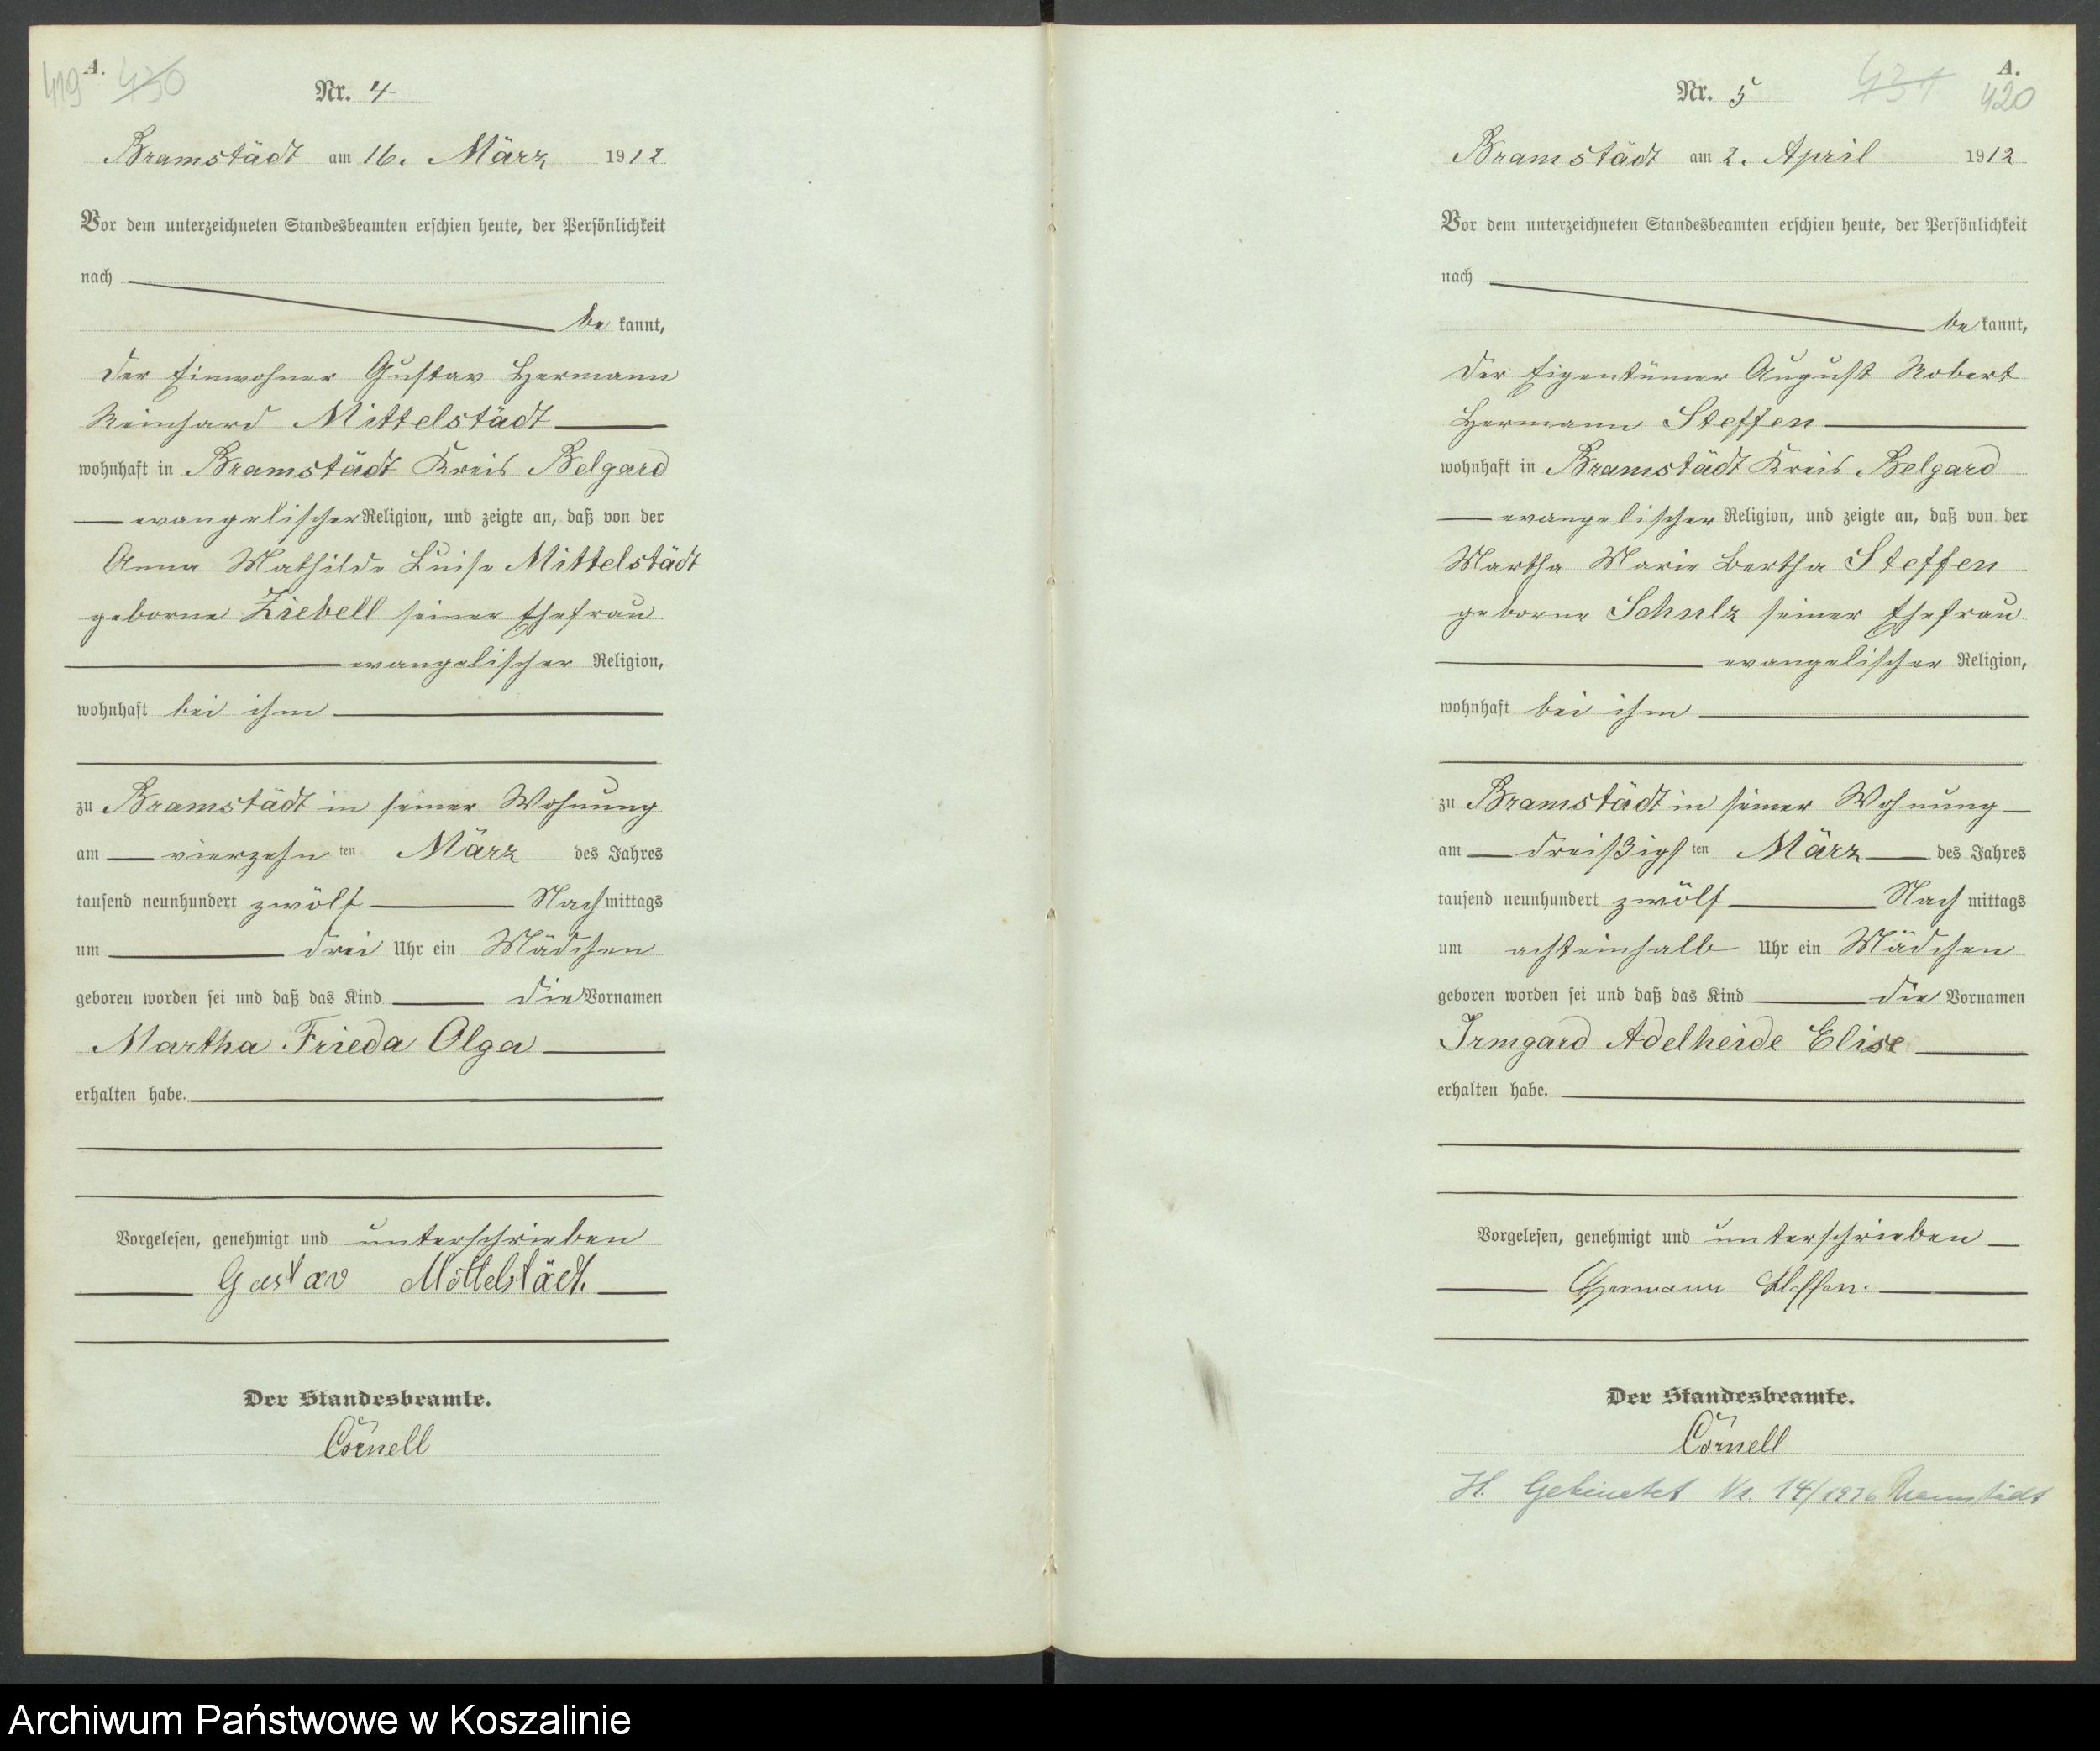 419 A. 430
Nr. 4
Bramstädt am 16. März 1912
Vor dem unterzeichneten Standesbeamten erschien heute, der Persönlichkeit
nach
be kannt,
der Einwohner Gustav Hermann
Reinhard Mittelstädt
wohnhaft in Bramstädt Kreis Belgard
evangelischer Religion, und zeigte an, daß von der
Anna Mathilde Luise Mittelstädt
geborne Ziebell seiner Ehefrau
evangelischer Religion,
wohnhaft bei ihm
zu Bramstädt in seiner Wohnung
am vierzehn ten März des Jahres
tausend neunhundert zwölf Nach mittags
um drei Uhr ein Mädchen
geboren worden sei und daß das Kind die Vornamen
Martha Frieda Olga
erhalten habe.
Vorgelesen, genehmigt und unterschrieben
Gustav Mittelstädt.
Der Standesbeamte.
Cörnell
A.
Nr. 5 431 420
Bramstädt am 2. April 1912
Vor dem unterzeichneten Standesbeamten erschien heute, der Persönlichkeit
nach
be kannt,
der Eigentümer August Robert
Hermann Steffen
wohnhaft in Bramstädt Kreis Belgard
evangelischer Religion, und zeigte an, daß von der
Martha Marie Bertha Steffen
geborne Schulz seiner Ehefrau
evangelischer Religion,
wohnhaft bei ihm
zu Bramstädt in seiner Wohnung
am dreißigs ten März des Jahres
tausend neunhundert zwölf Nach mittags
um achteinhalb Uhr ein Mädchen
geboren worden sei und daß das Kind die Vornamen
Irmgard Adelheide Elise
erhalten habe.
Vorgelesen, genehmigt und unterschrieben
Hermann Steffen.
Der Standesbeamte.
Cörnell
H. Geheiratet Nr. 14/1936 Bramstädt
Archiwum Państwowe w Koszalinie